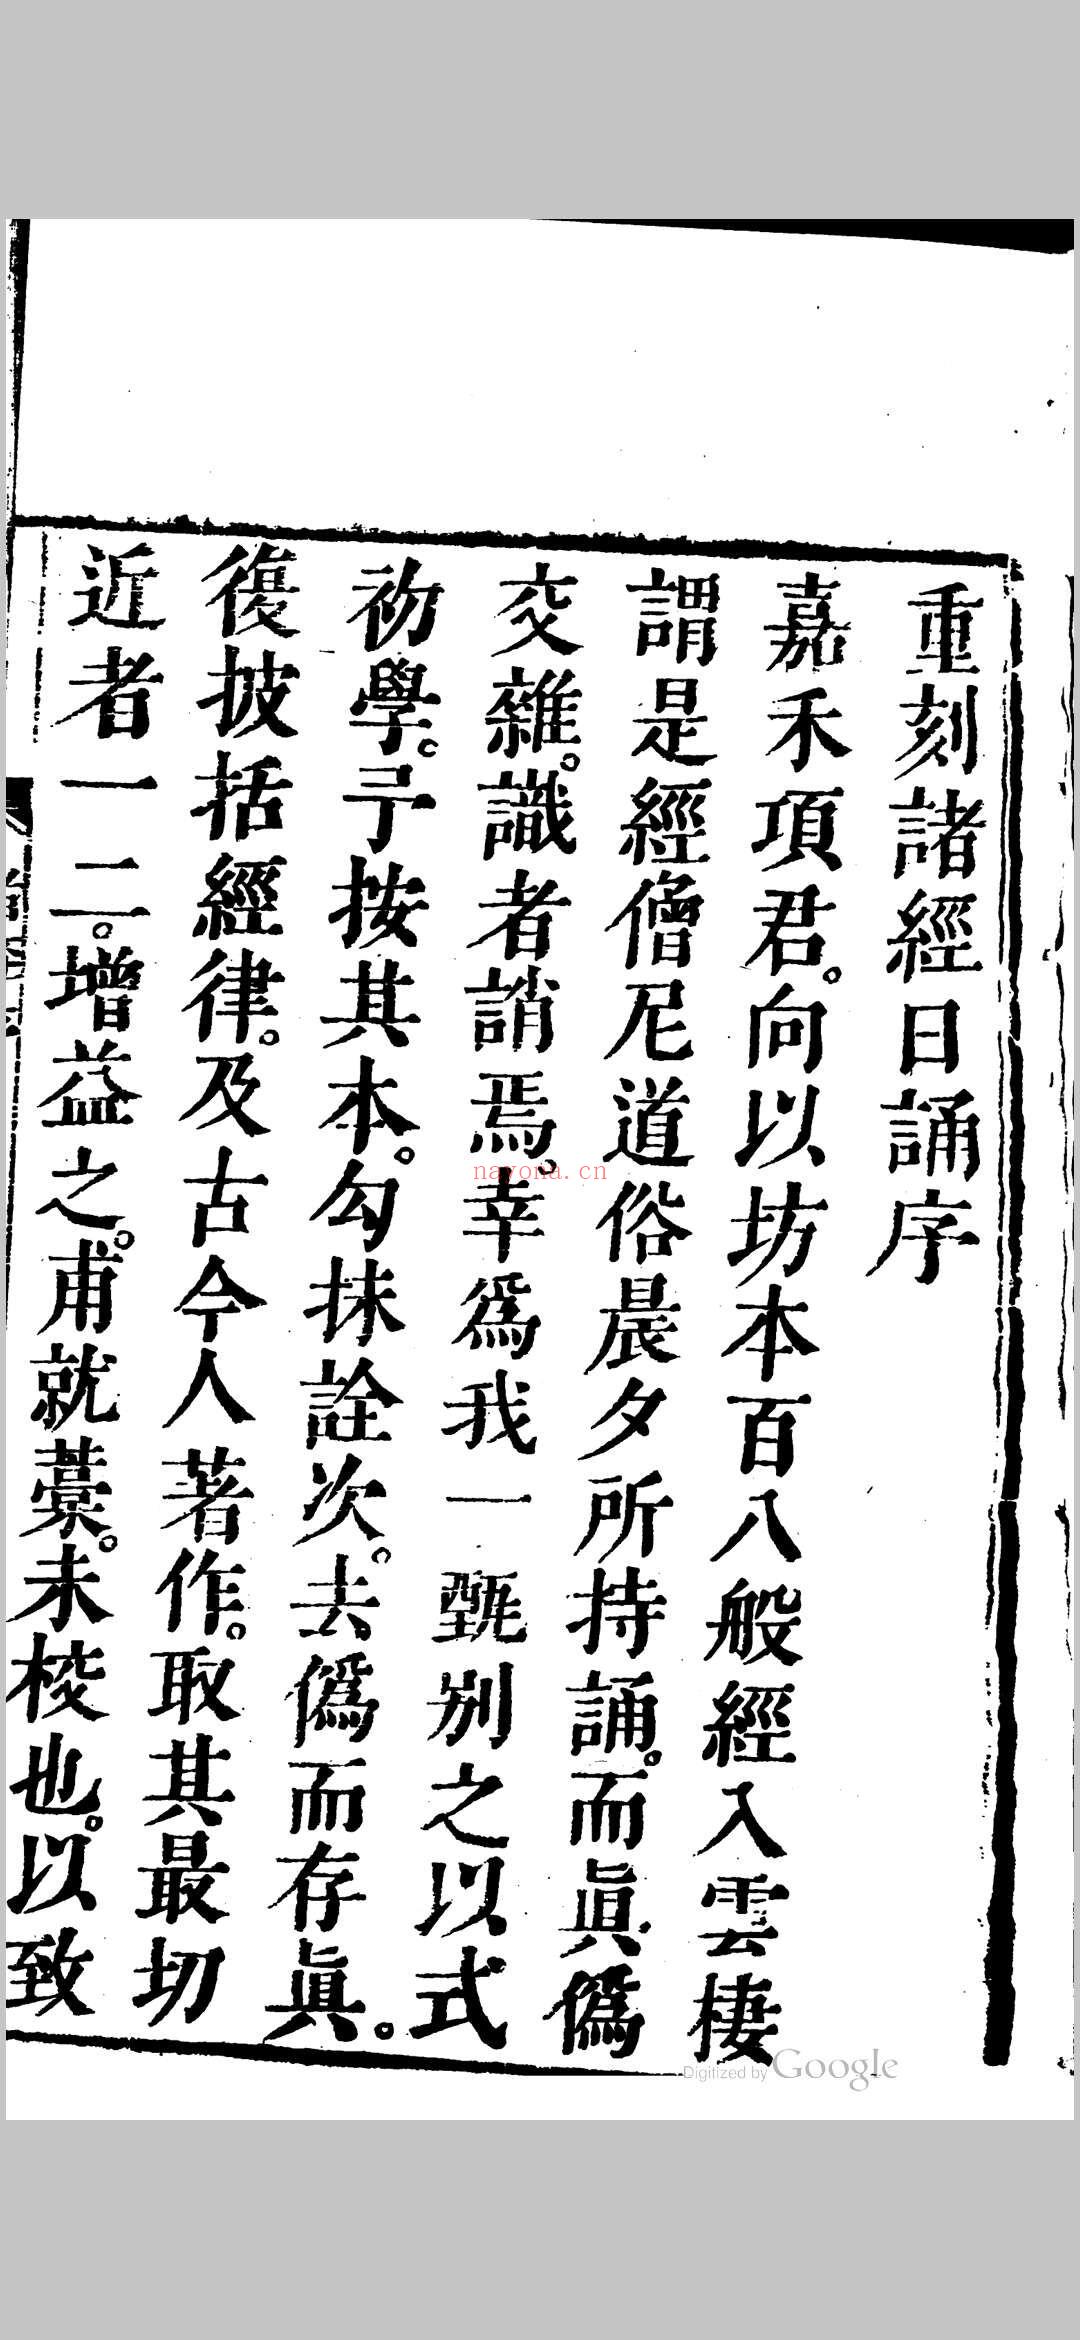 重刻諸經日誦序
嘉禾項君。向以坊本百八般經入雲棲
謂是經僧尼道俗晨夕所持誦。而眞僞
交雜。識者誚焉。幸爲我一甄別之以式
初學。予按其本。勾抹詮次。去僞而存眞。
復披括經律。及古今人著作。取其最切
近者一二。增益之。甫就藁。未梭也。以致
nayona.cn
Digitized by Google